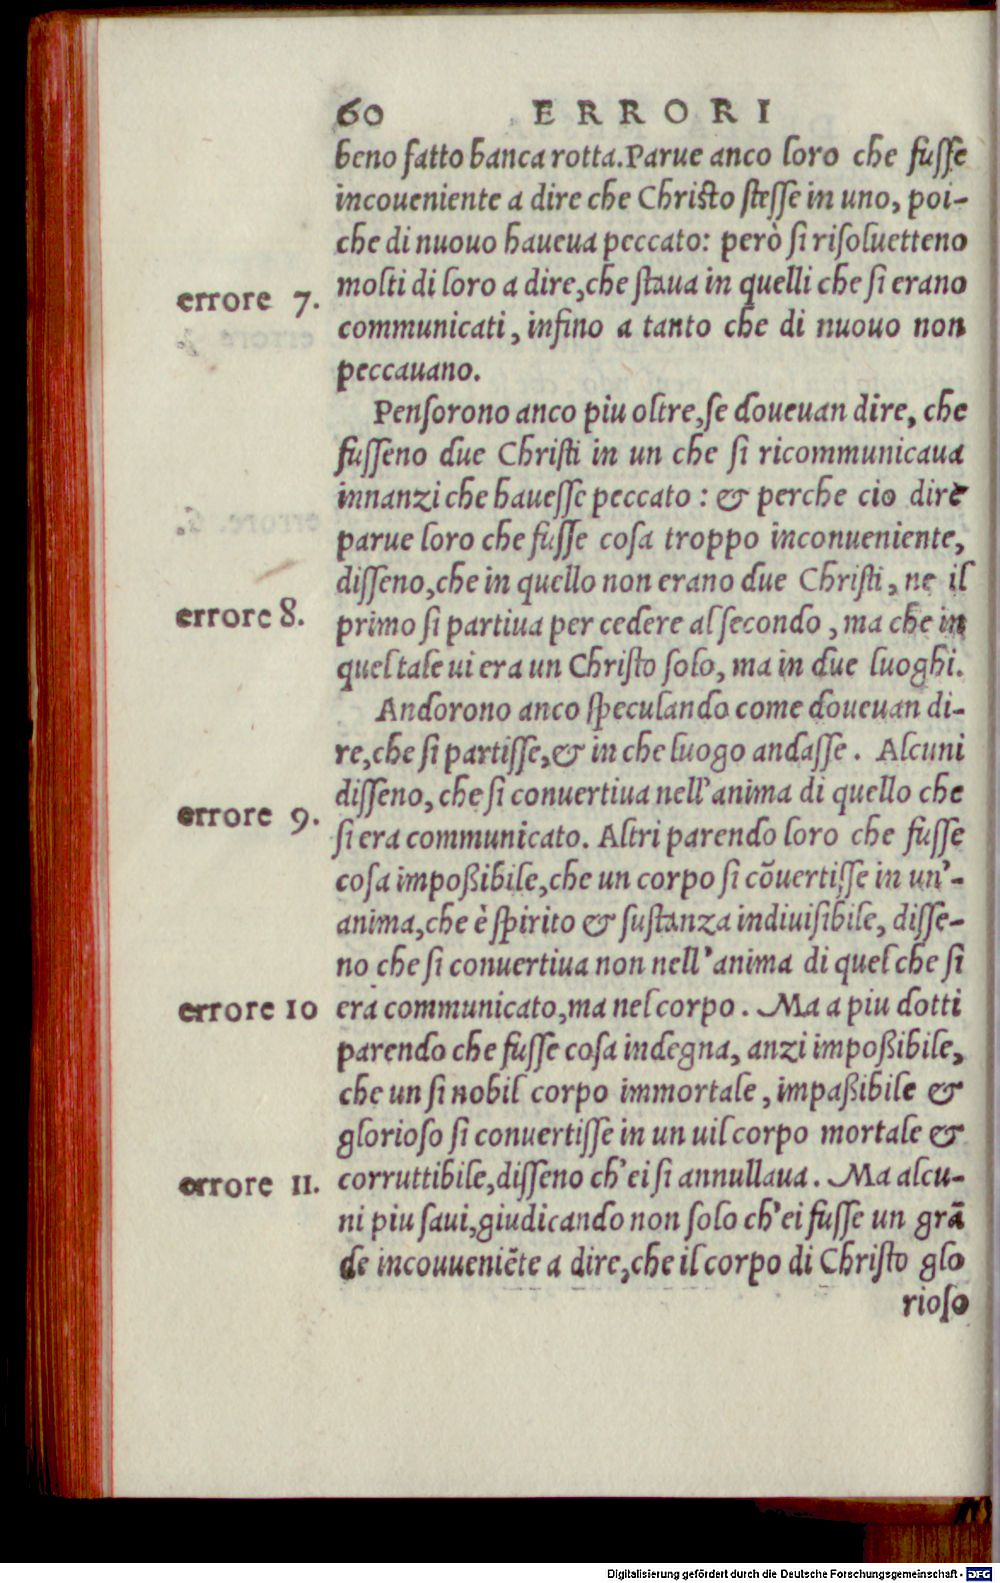 60 ERRORI
beno fatto banca rotta. Parue anco loro che fuſſe
incoueniente a dire che Chriſto ſteſſe in uno, poi-
che di nuouo haueua peccato: però ſi riſoluetteno
molti di loro a dire, che ſtaua in quelli che ſi erano
errore 7.
communicati, infino a tanto che di nuouo non
peccauano.
Penſorono anco piu oltre, ſe doueuan dire, che
fuſſeno due Chriſti in un che ſi ricommunicaua
innanzi che haueſſe peccato: & perche cio dire
parue loro che fuſſe coſa troppo inconueniente,
diſſeno, che in quello non erano due Chriſti, ne il
errore 8.
primo ſi partiua per cedere al ſecondo, ma che in
quel tale ui era un Chriſto ſolo, ma in due luoghi.
Andorono anco ſpeculando come doueuan di-
re, che ſi partiſſe, & in che luogo andaſſe. Alcuni
diſſeno, che ſi conuertiua nell'anima di quello che
errore 9.
ſi era communicato. Altri parendo loro che fuſſe
coſa impoßibile, che un corpo ſi cõuertiſſe in un'-
anima, che è ſpirito & ſuſtanza indiuiſibile, diſſe-
no che ſi conuertiua non nell'anima di quel che ſi
errore 10
era communicato, ma nel corpo. Ma a piu dotti
parendo che fuſſe coſa indegna, anzi impoßibile,
che un ſi nobil corpo immortale, impaßibile &
glorioſo ſi conuertiſſe in un uil corpo mortale &
errore 11.
corruttibile, diſſeno ch'ei ſi annullaua. Ma alcu-
ni piu ſaui, giudicando non ſolo ch'ei fuſſe un grã
de incouueniẽte a dire, che il corpo di Chriſto glo
rioſo
Digitalisierung gefördert durch die Deutsche Forschungsgemeinschaft - DFG